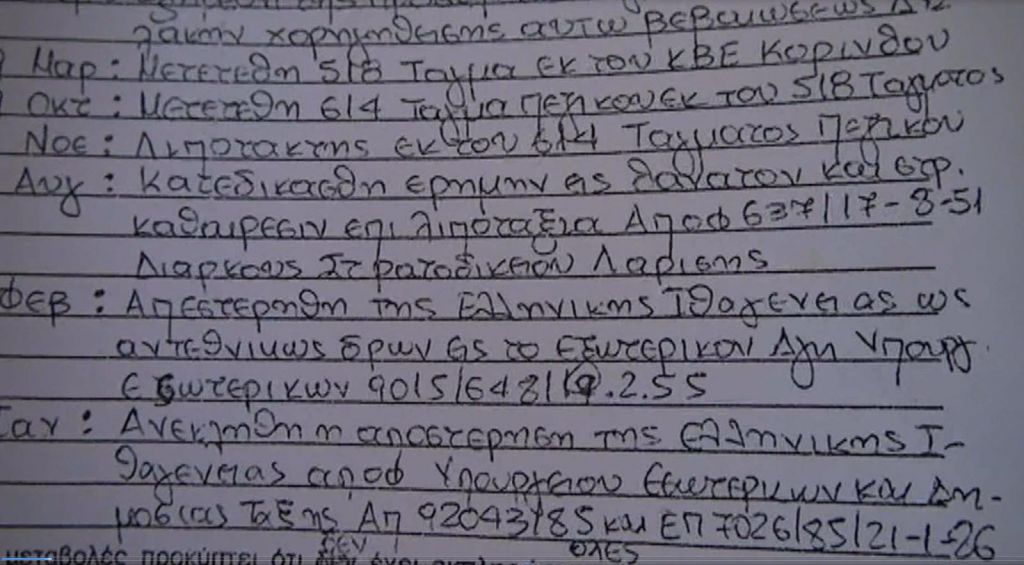 λακην χορηγηθεισης αυτω βεβαιωσεως
Μαρ : Μετετεθη 518 Ταγμα εκ του ΚΒΕ Κορινθου
Οκτ : Μετετεθη 614 Ταγμα Πεζικου εκ του 518 Ταγματος
Νοε : Λιποτακτης εκ του 614 Ταγματος Πεζικου
Αυγ : Κατεδικασθη ερημην εις θανατον και στρ.
καθαιρεσιν επι λιποταξια Αποφ 637/17-8-51
Διαρκους Στρατοδικειου Λαρισης
Φεβ : Απεστερηθη της Ελληνικης Ιθαγενειας ως
αντεθνικως δρων εις το εξωτερικον Δγη Υπουργ.
Εσωτερικων 9015/648/19.2.55
Ιαν : Ανεκληθη η αποστερηση της ελληνικης Ι-
θαγενειας αποφ Υπουργειου Εσωτερικων και Δη-
μοσιας Ταξης Απ 92043/85 και ΕΠ 7026/85/21-1-86
μεταβολές προκύπτει ότι δεν όλες